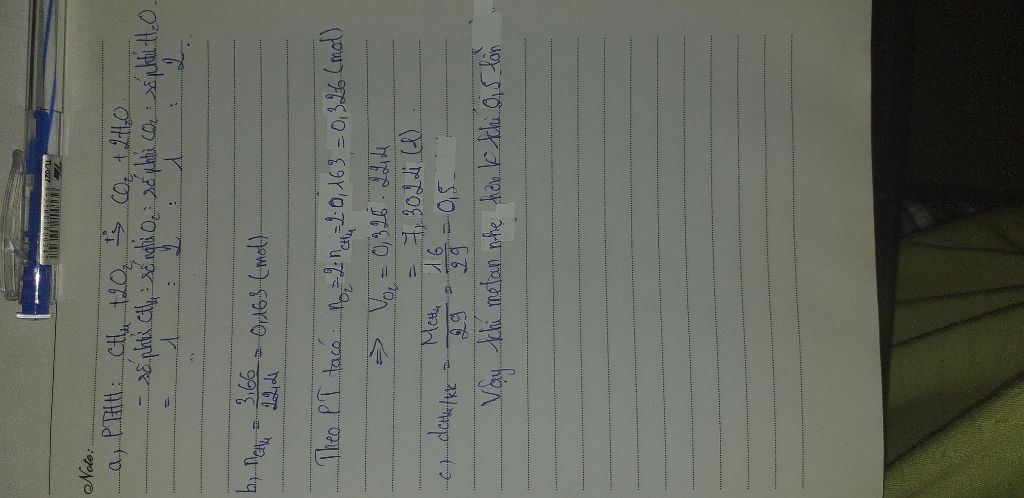 Note:
a, PTHH: CH₄ + 2O₂ t° → CO₂ + 2H₂O.
- số phtử CH₄ : số nghtử O₂ : số phtử CO₂ : số phtử H₂O.
= 1 : 2 : 1 : 2
b, nCH₄ = 3,66 / 22,4 = 0,163 (mol)
Theo PT ta có: nO₂ = 2. nCH₄ = 2. 0,163 = 0,326 (mol)
=> VO₂ = 0,326 . 22,4
= 7,3024 (l)
c, dCH₄/kk = MCH₄ / 29 = 16 / 29 = 0,5
Vậy khí metan nhẹ hơn k khí 0,5 lần
TL-027